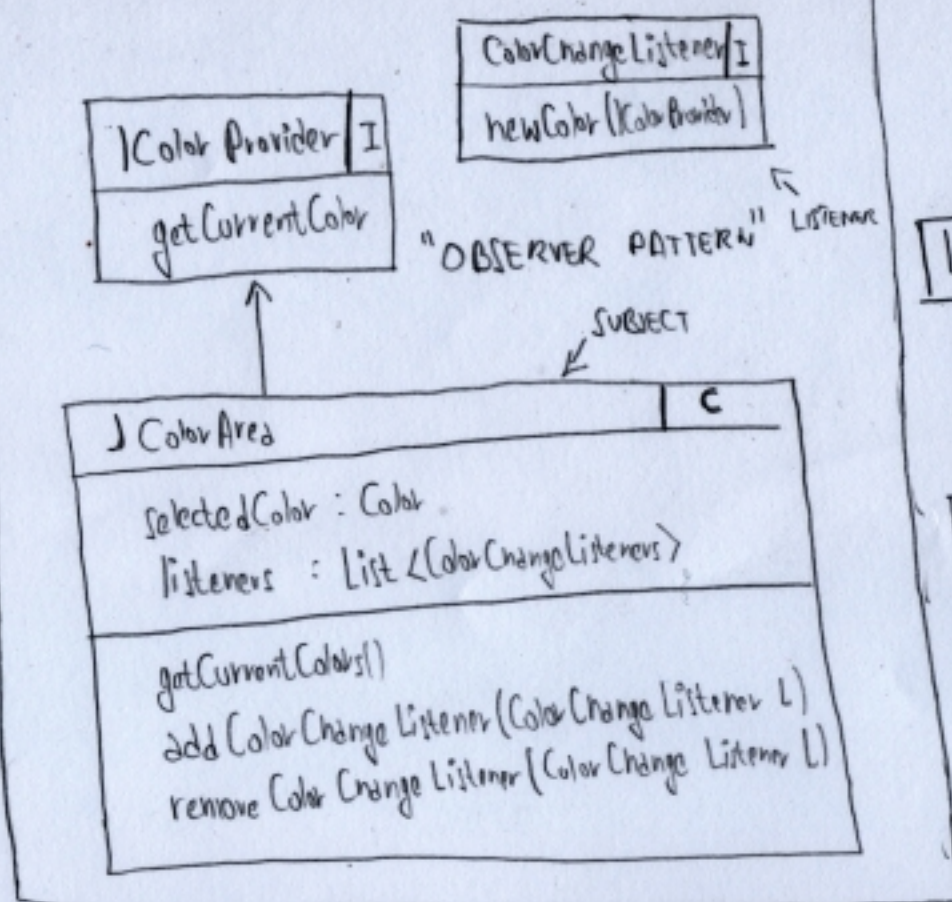 ColorChangeListener I
newColor(IColorProvider)
IColor Provider I
getCurrentColor
LISTENER
"OBSERVER PATTERN"
SUBJECT
JColorArea C
selectedColor : Color
listeners : List <ColorChangeListeners>
getCurrentColors()
add Color Change Listener (Color Change Listener L)
remove Color Change Listener (Color Change Listener L)